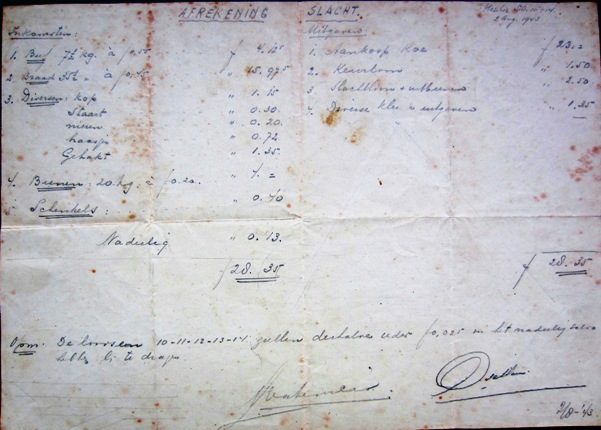 AFREKENING SLACHT.
2 Aug. 1943
Inkomsten:
1. Beef 7½ kg. à f 0.55 f 4.125
2. Braad 35½ " à f 0.45 " 15.975
3. Diversen: kop " 1.15
Staart " 0.30
nieren " 0.20
haasje " 0.72
Gehakt " 1.35
4. Beenen: 20 kg. à f 0.20. " 4.=
Schenkels: " 0.40
Nadeelig " 0.13
f 28.35
Uitgaven:
1. Aankoop Koe f 23.=
2. Keurloon " 1.50
3. Slachtloon + uitbeenen " 2.50
4. Diverse kleine uitgaven " 1.35
f 28.35
Opm: De 10-11-12-13-14 zullen derhalve ieder f 0,025 in het nadeelig saldo
te dragen
2/8-'43